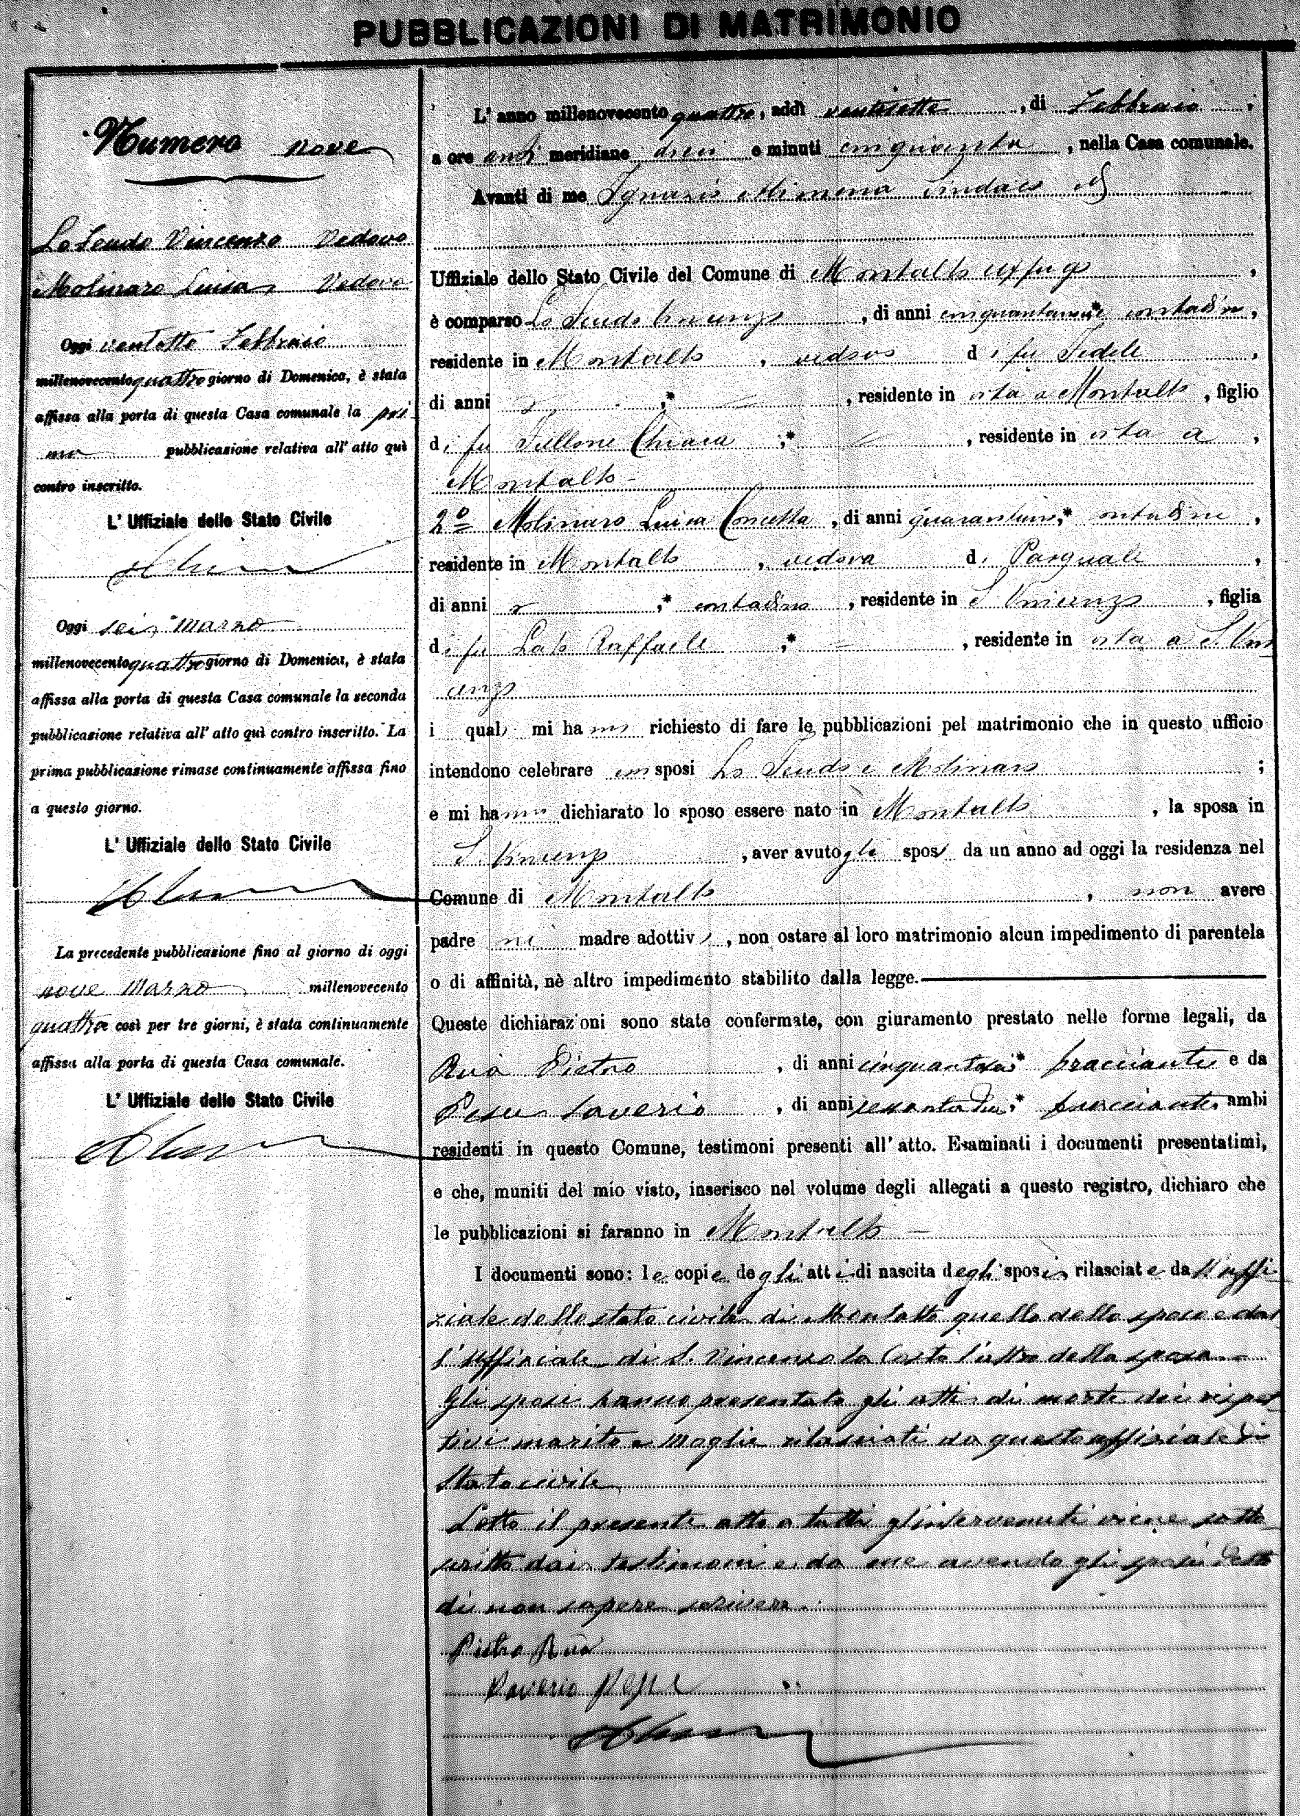 PUBBLICAZIONI DI MATRIMONIO
Numero nove
Lo Feudo Vincenzo Vedovo
Molinaro Luisa Vedova
Oggi ventotto Febbraio
millenovecento quattro giorno di Domenica, è stata
affissa alla porta di questa Casa comunale la pri
ma pubblicazione relativa all' atto quì
contro inscritto.
L' Uffiziale dello Stato Civile
Oggi sei Marzo
millenovecento quattro giorno di Domenica, è stata
affissa alla porta di questa Casa comunale la seconda
pubblicazione relativa all' atto quì contro inscritto. La
prima pubblicazione rimase continuamente affissa fino
a questo giorno.
L' Uffiziale dello Stato Civile
La precedente pubblicazione fino al giorno di oggi
nove Marzo millenovecento
quattro e così per tre giorni, è stata continuamente
affissa alla porta di questa Casa comunale.
L' Uffiziale dello Stato Civile
L' anno millenovecento quattro, addì ventisette, di Febbraio,
a ore anti meridiane dieci e minuti cinquanta, nella Casa comunale.
Avanti di me Ignazio Alimena Sindaco ed
Uffiziale dello Stato Civile del Comune di Montalto Uffugo,
è comparso Lo Feudo Vincenzo, di anni contadino,
residente in Montalto, vedovo di fu Fedele,
di anni ,* , residente in vita a Montalto, figlio
di fu Fullone Chiara ,* , residente in vita a,
Montalto
2º Molinaro Luisa Concetta, di anni ,* contadina,
residente in Montalto, vedova di Pasquale,
di anni ,* contadino, residente in S. Vincenzo, figlia
di fu Lato Raffaele ,* , residente in vita a S. Vin
cenzo
i quali mi hanno richiesto di fare le pubblicazioni pel matrimonio che in questo ufficio
intendono celebrare essi sposi Lo Feudo e Molinaro ;
e mi hanno dichiarato lo sposo essere nato in Montalto, la sposa in
S. Vincenzo, aver avuto gli sposi da un anno ad oggi la residenza nel
Comune di Montalto, non avere
padre nè madre adottivi, non ostare al loro matrimonio alcun impedimento di parentela
o di affinità, nè altro impedimento stabilito dalla legge.
Queste dichiarazioni sono state confermate, con giuramento prestato nelle forme legali, da
Ruà Pietro, di anni cinquantasei,* bracciante e da
Pesce Saverio, di anni sessantadue,* bracciante, ambi
residenti in questo Comune, testimoni presenti all' atto. Esaminati i documenti presentatimi,
e che, muniti del mio visto, inserisco nel volume degli allegati a questo registro, dichiaro che
le pubblicazioni si faranno in Montalto
I documenti sono: le copie degli atti di nascita degli sposi, rilasciate da ll'uffi
ziale dello stato civile di Montalto quello dello sposo e dal
l'uffiziale di S. Vincenzo la Costa l'altro della sposa.
Gli sposi hanno presentato gli atti di morte dei rispet
tivi marito e moglie rilasciati da questo uffiziale di
stato civile
Letto il presente atto a tutti gl'intervenuti viene sotto
scritto dai testimoni e da me avendo gli sposi detto
di non sapere scrivere.
Pietro Ruà
Saverio Pesce